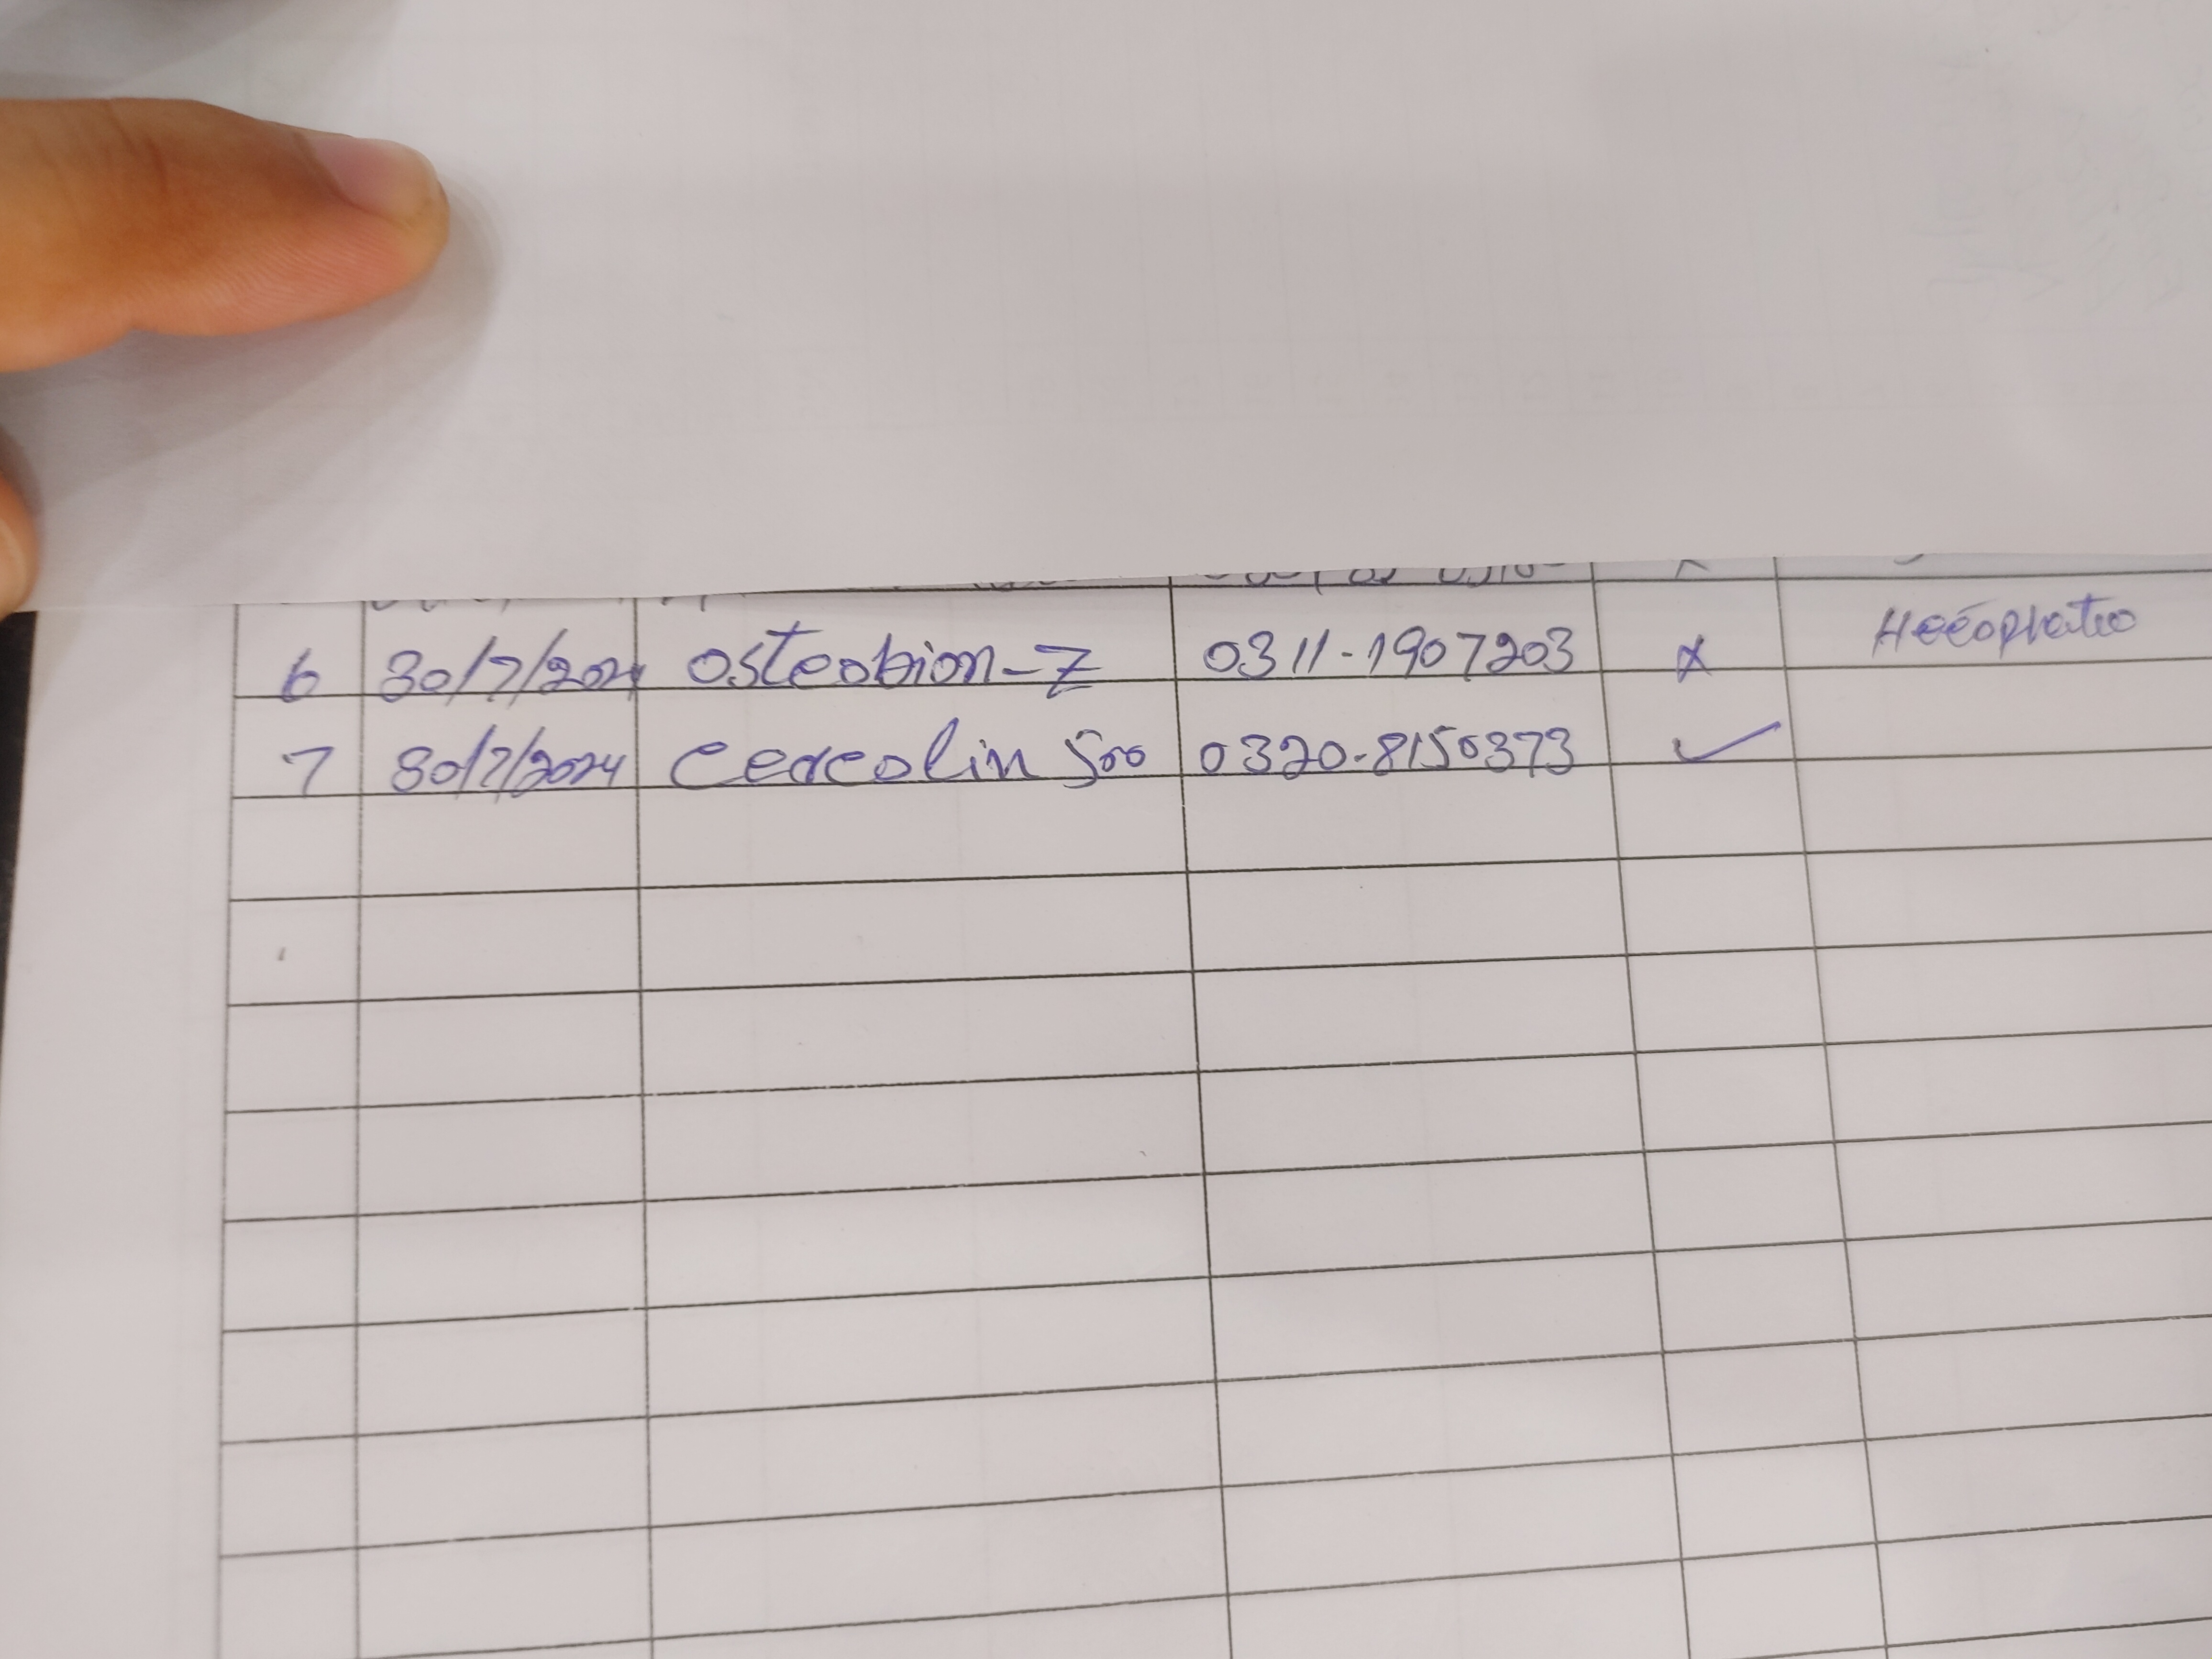 6 30/7/2024 Osteobion-Z 0311-1907203 x
7 30/7/2024 Cercolin 500 0320-8150373 ✓